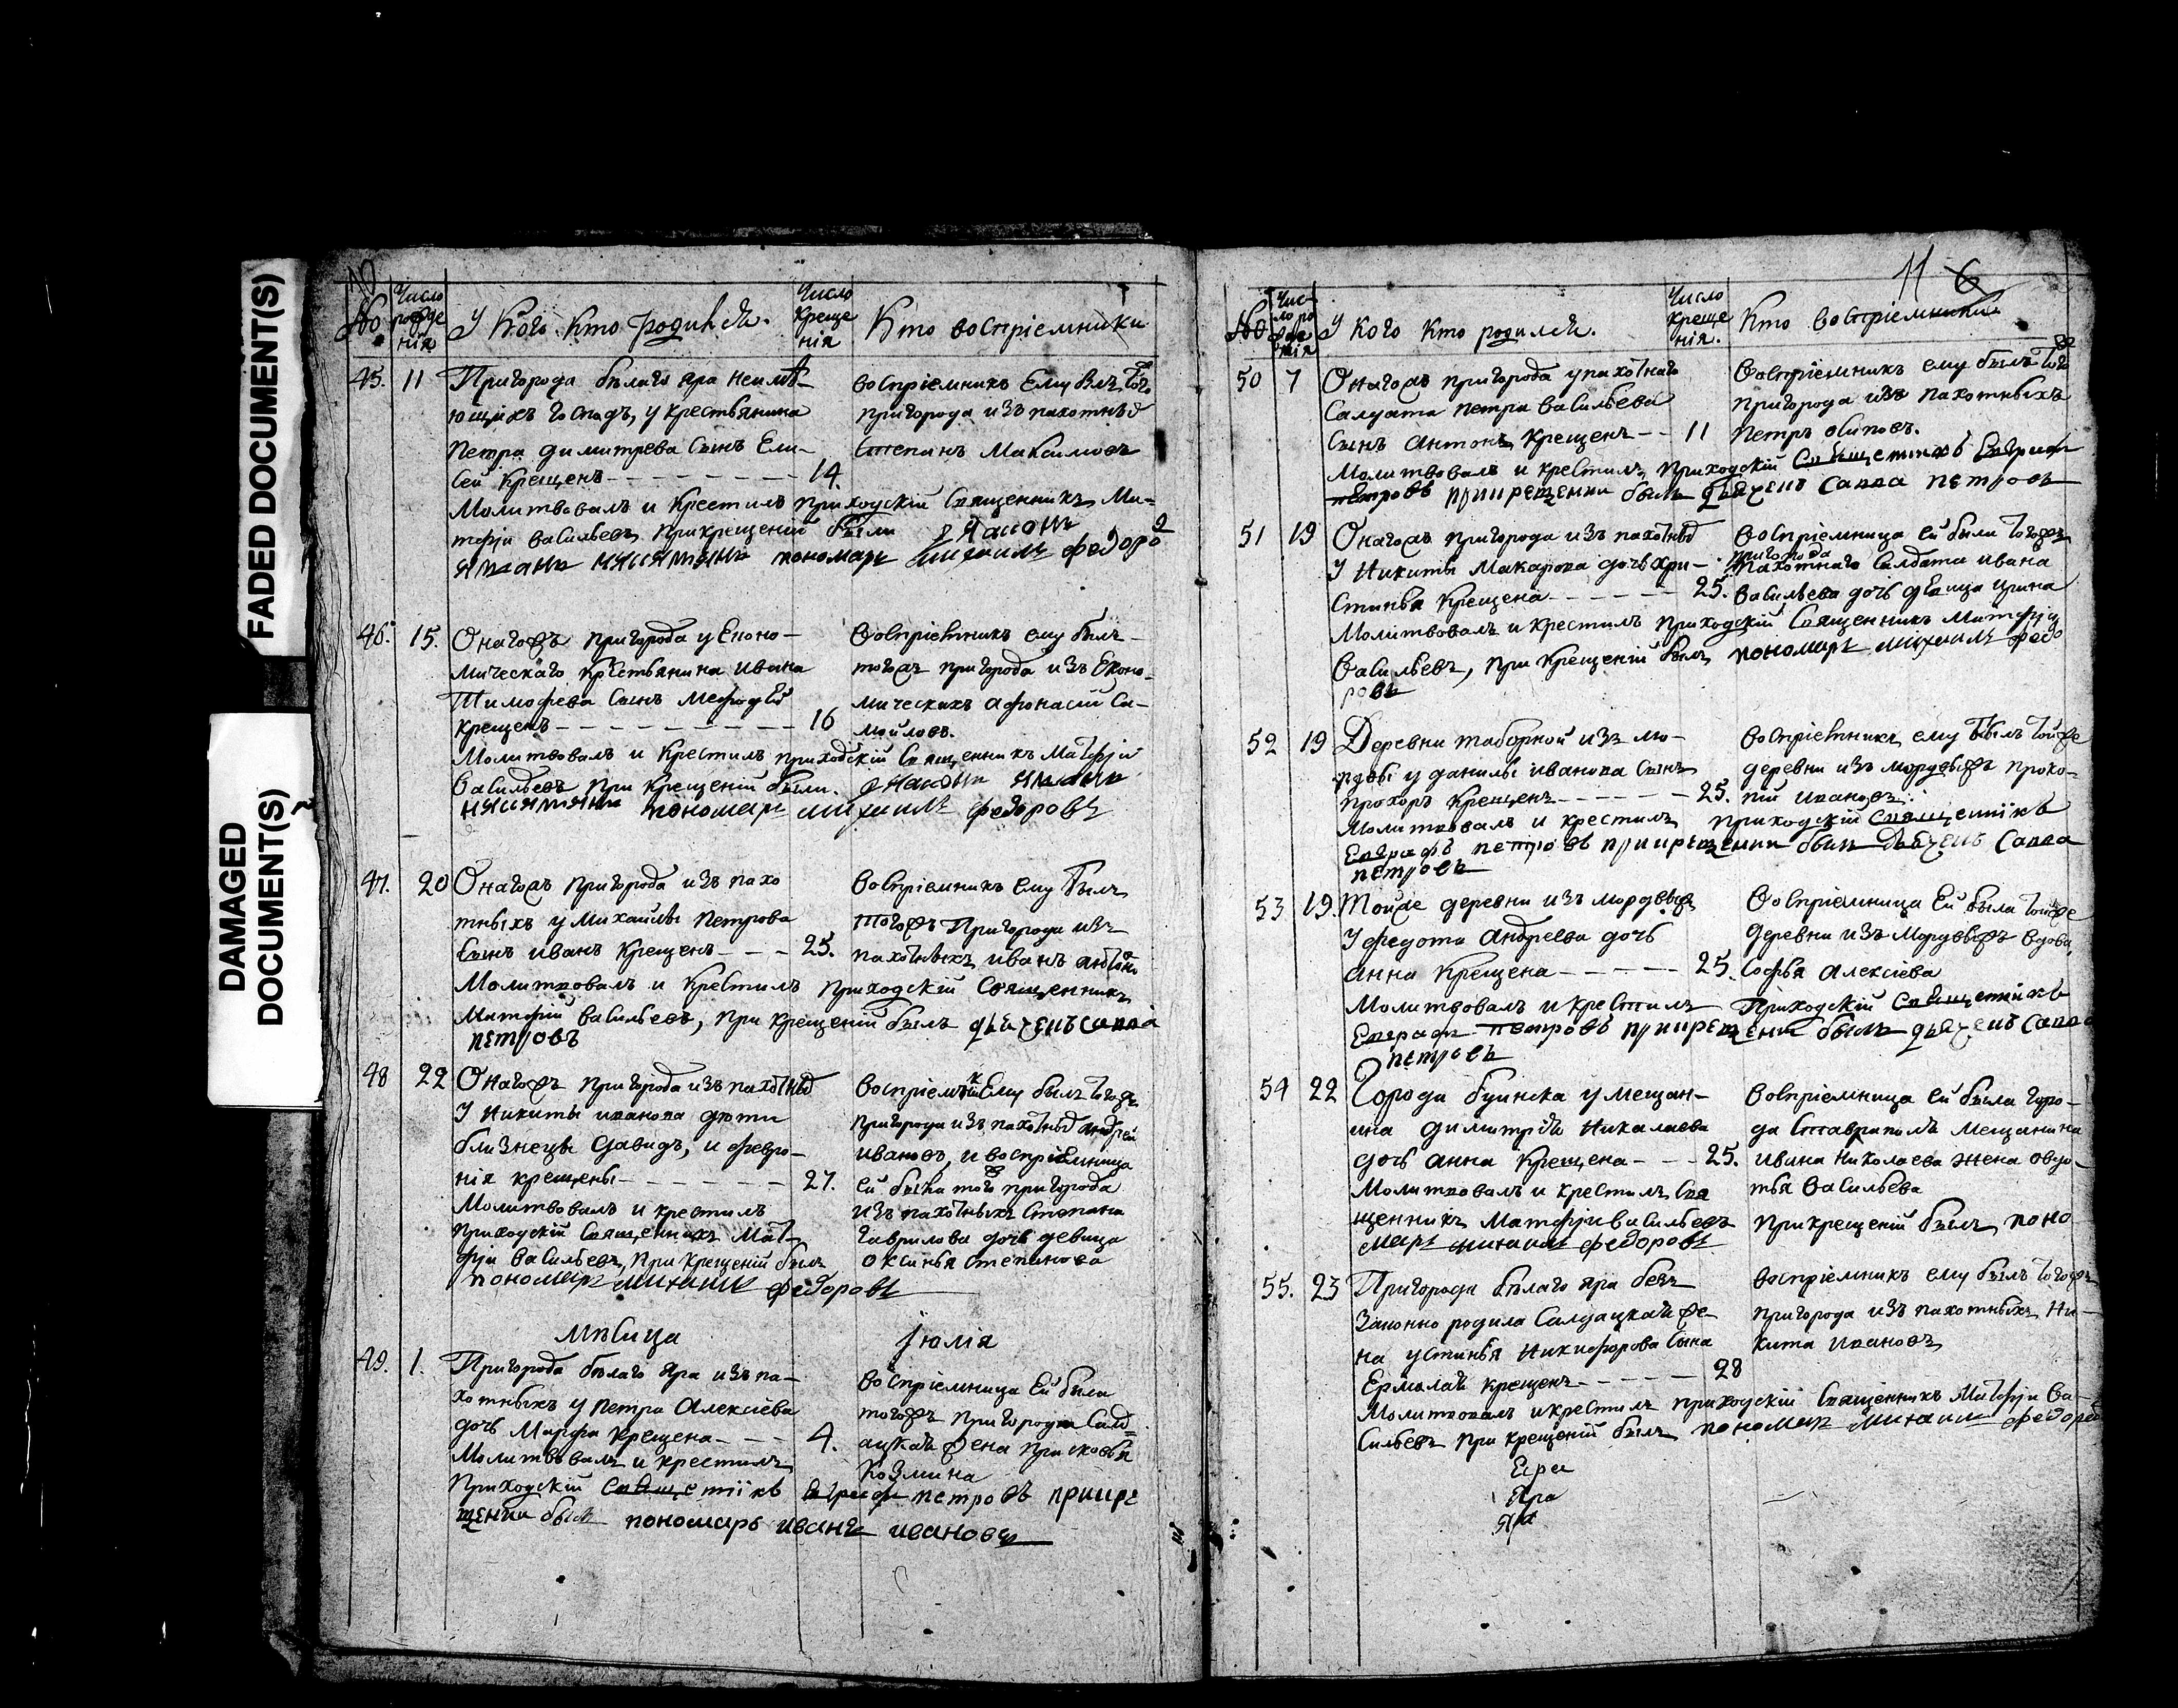 FADED DOCUMENT(S)
DAMAGED
DOCUMENT(S)
10
№
Число рожде нія
У кого кто родился.
Число креще нія
Кто воспріемники
45. 11 Пригорода белаго яра неимѣ-
ющихъ господъ, у крестьянина
Петра димитрева сынъ Ели-
сей крещенъ - - - - - - 14.
воспріемникъ Ему былъ тогожъ
пригорода изъ пахотныхъ
Степанъ Максимовъ
Молитвовалъ и Крестилъ приходскій Священникъ Ма-
тфѣи васильевъ, прикрещеніи были дьяконъ
пономарь михаилъ федоровъ
46. 15. Онагожъ пригорода у Еконо-
мическаго крестьянина ивана
Тимофеева сынъ Мефодѣй
крещенъ - - - - - - - 16
Воспріемникъ ему былъ
тогожъ пригорода изъ Еконо-
мическихъ афонасій Са-
мойловъ.
Молитвовалъ и Крестилъ приходскій Священникъ Матфѣй
Васильевъ при крещеніи были. дьяконъ
пономарь михаилъ федоровъ
47. 20 Онагожъ пригорода изъ пахо
тныхъ у Михайлы петрова
Сынъ иванъ крещенъ - - - 25.
Воспріемникъ ему былъ
тогожъ пригорода изъ
пахотныхъ иванъ антоно
Молитвовалъ и Крестилъ приходскій Священникъ
Матфій васильевъ, при крещеніи былъ дьячекъ савва
петровъ
48 22 Онагожъ пригорода изъ пахотныхъ
У Никиты иванова дѣти
близнецы давидъ, и февро-
нія крещены - - - - - - 27.
Молитвовалъ и крестилъ
приходскій Священникъ Мат-
фѣи васильевъ, при крещеніи былъ
пономарь михаилъ федоровъ
воспріемникъ Ему былъ тогожъ
пригорода изъ пахотныхъ андрей
ивановъ, и воспріемница
ей была тогожъ пригорода
изъ пахотныхъ Степана
гаврилова дочь девица
оксинья степанова
Мѣсица Іюлія
49. 1. Пригорода белаго яра изъ па-
хотныхъ у петра Алексіева
дочь Марфа крещена - - - 4.
Молитвовалъ и крестилъ
воспріемница Ей была
тогожъ пригорода Салд-
ацкая жена прасковья
козмина
Приходскій Священникъ Евграфъ петровъ прикре
щеніи былъ пономарь иванъ ивановъ
11 6
№
Чис-ло ро жде нія
У кого кто родился.
Число креще нія.
Кто воспріемники
50 7 Онагожъ пригорода у пахотнаго
Салдата петра васильева
сынъ антонъ крещенъ - - 11
Воспріемникъ ему былъ тогожъ
пригорода изъ пахотныхъ
Петръ осиповъ.
Молитвовалъ и крестилъ приходскій Священникъ Евграфъ
петровъ прикрещеніи былъ дьячекъ савва петровъ
51 19 Онагожъ пригорода изъ пахотныхъ
У Никиты Макарова дочь хри-
стинья крещена - - - - - 25.
воспріемница ей были тогожъ
пригорода
пахотнаго Салдата ивана
васильева дочь дѣвица ирина
Молитвовалъ и крестилъ приходскій Священникъ Матфѣи
Васильевъ, при крещеніи былъ пономарь михаилъ федо
ровъ
52 19 Деревни таборной изъ мо-
рдвы у данилы иванова сынъ
прохоръ крещенъ - - - - - 25.
воспріемникъ ему былъ тойже
деревни изъ мордвыжъ проко-
пій ивановъ.
Молитвовалъ и крестилъ приходскій священникъ
Евграфъ петровъ прикрещеніи былъ дьячекъ савва
петровъ
53 19. Тойже деревни изъ мордвыжъ
У федота Андреева дочь
анна крещена - - - - - 25.
Воспріемница Ей была тойже
деревни изъ Мордвыжъ вдова
Софья Алексіева
Молитвовалъ и крестилъ приходскій Священникъ
Евграфъ петровъ прикрещеніи былъ дьячекъ савва
петровъ
54 22 Города буинска у мещан-
ина димитріѣ николаева
дочь анна крещена - - - 25.
Молитвовалъ и крестилъ Свя
щенникъ Матфѣи васильевъ
марь михаилъ федоровъ
Воспріемница ей была горо-
да Ставраполѣ мещанина
ивана Николаева жена овдо-
тья васильева
при крещеніи былъ поно
55. 23 Пригорода белаго яра безъ
законно родила Салдацкая же-
на устинья Никифорова сына
Ермолай крещенъ - - - - - 28
воспріемникъ ему былъ тогожъ
пригорода изъ пахотныхъ Ни-
кита ивановъ
Молитвовалъ и крестилъ приходскій Священникъ Матфѣи Ва-
сильевъ при крещеніи былъ пономарь михаилъ федоро
Ера
Яра
Яра